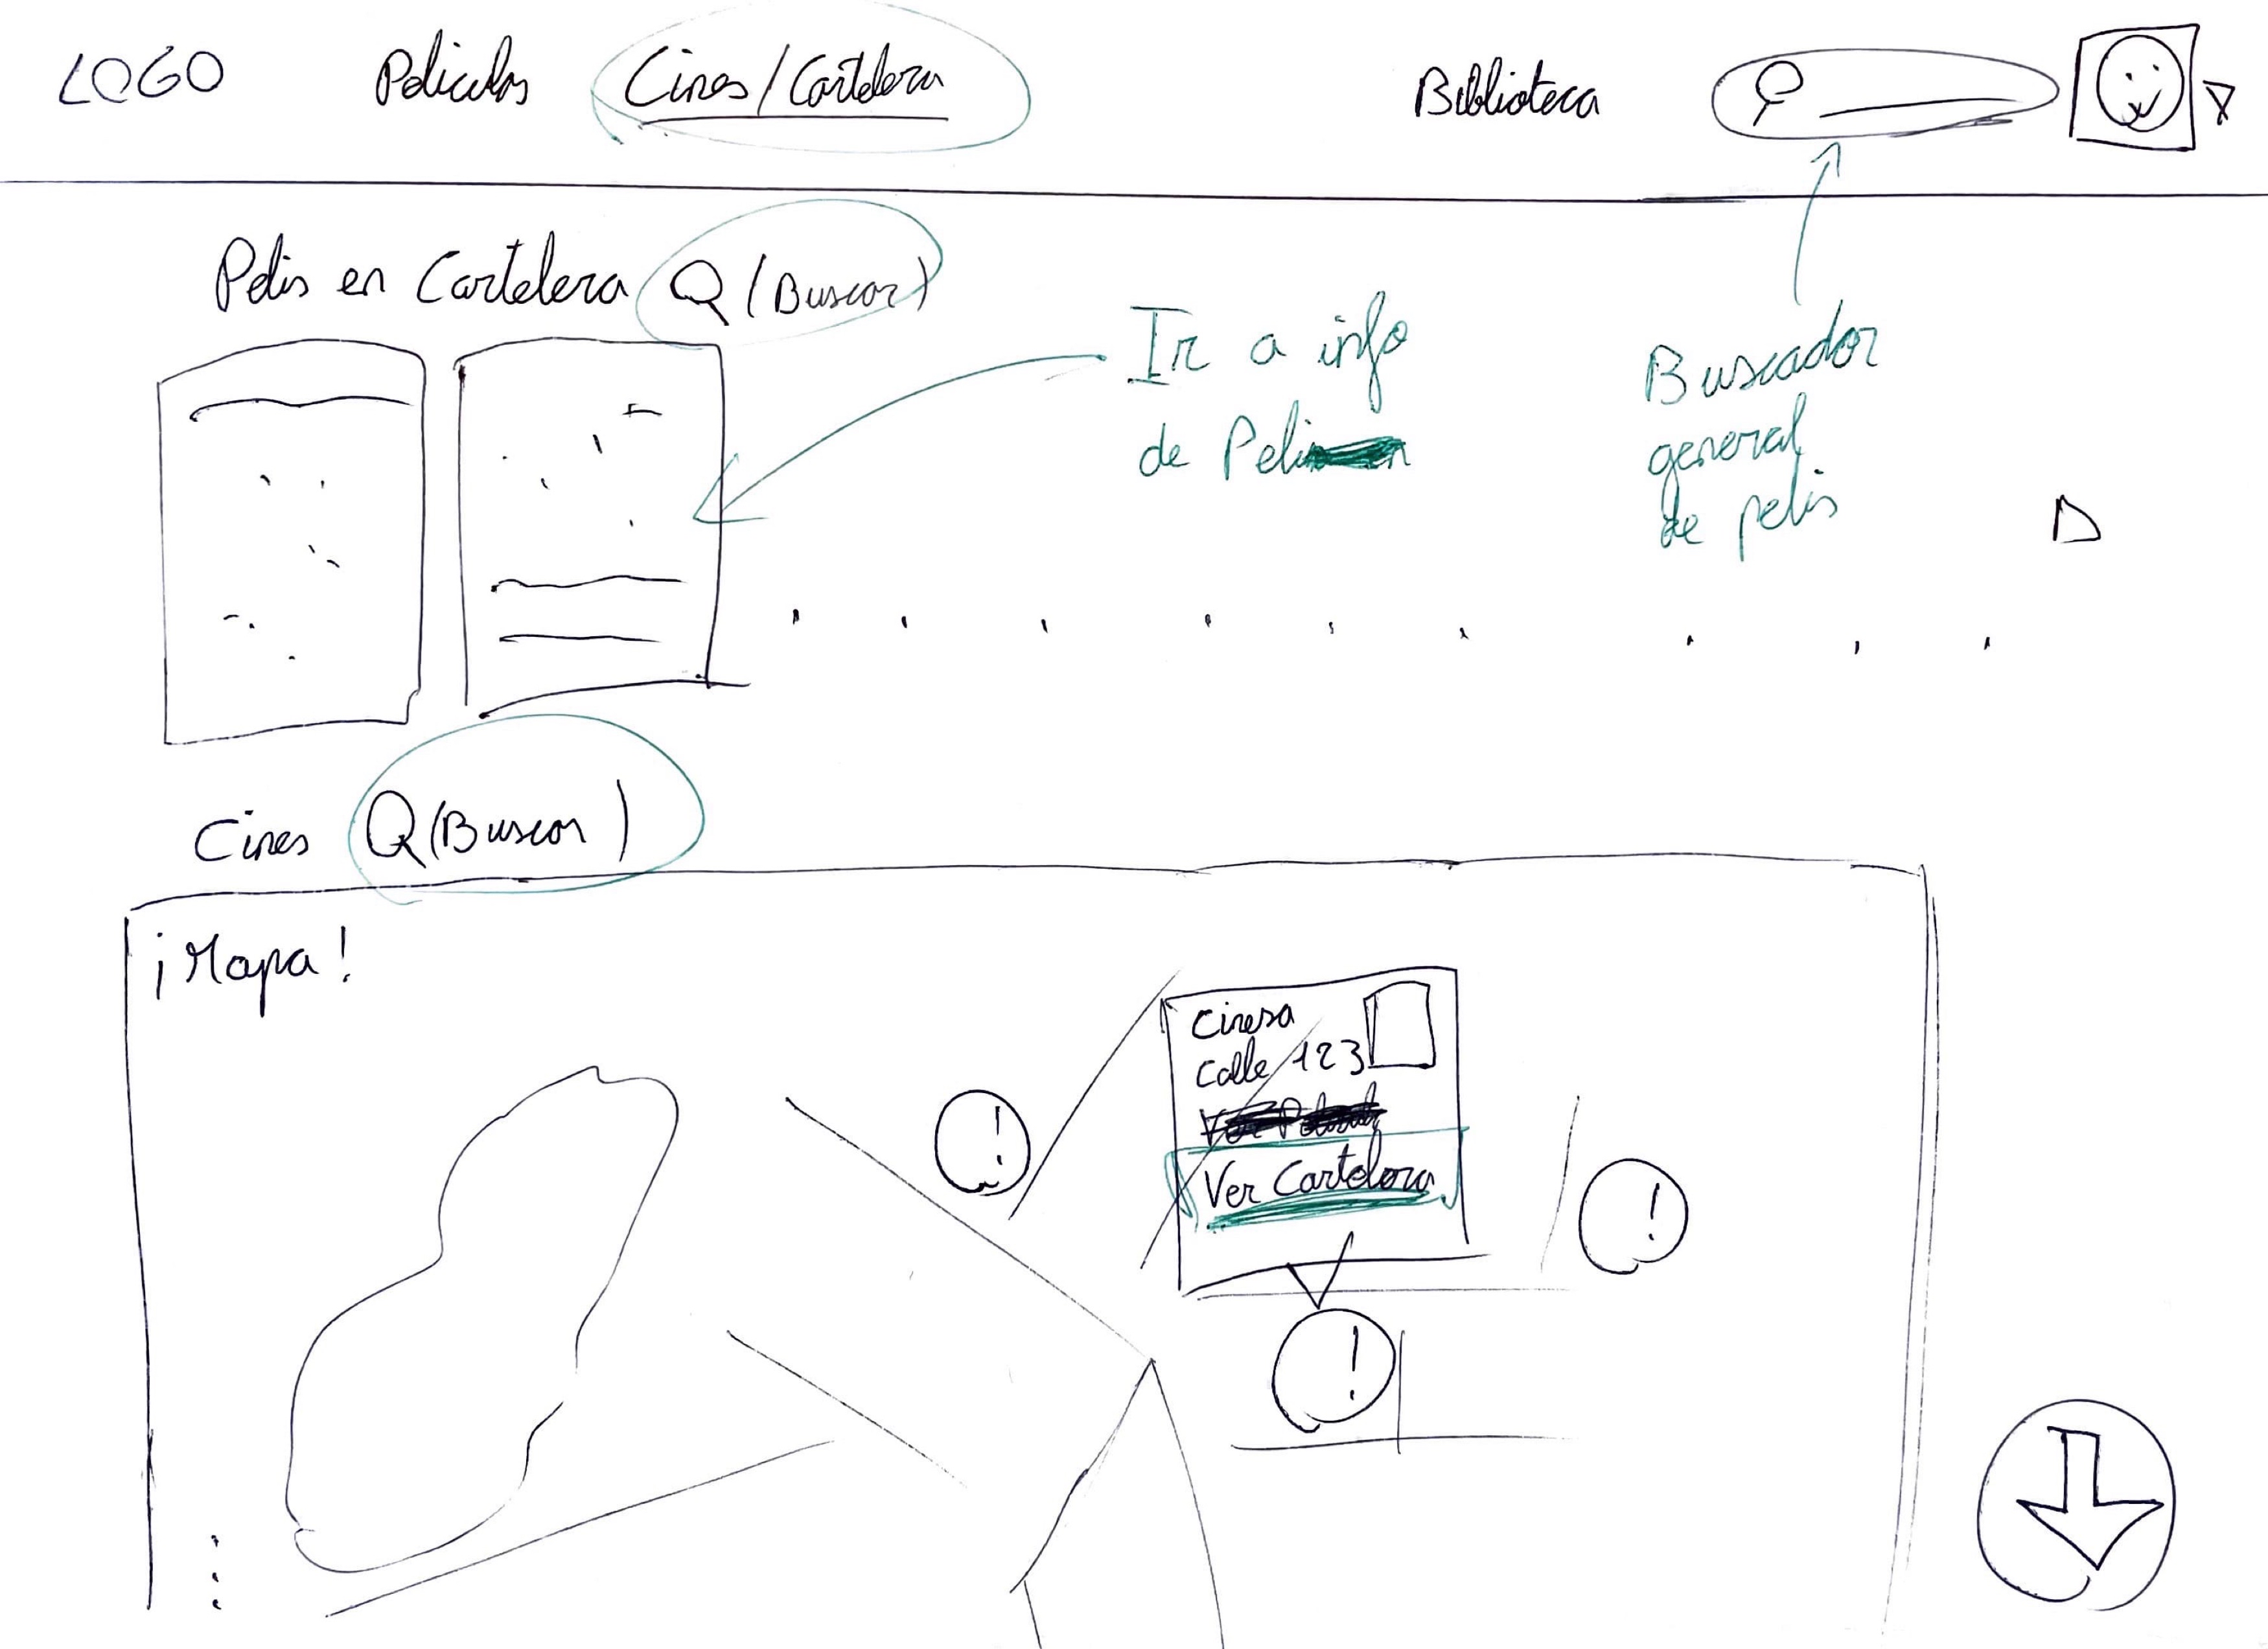 LOGO Peliculas Cines/Cartelera Biblioteca
Pelis en Cartelera (Buscar)
Ir a info
de Peli
Buscador
general
de pelis
Cines (Buscar)
¡Mapa!
Cinesa
calle 123
Ver Cartelera